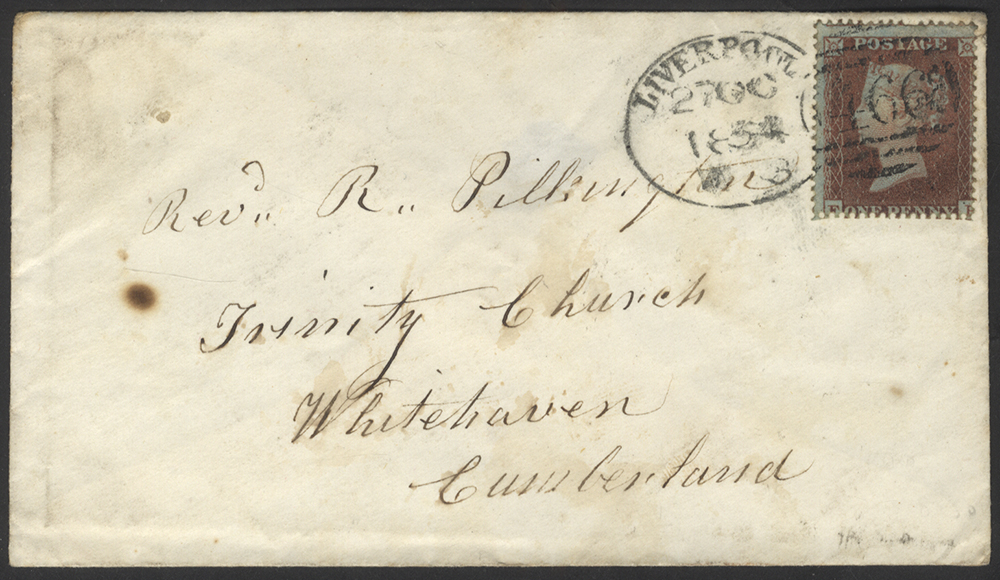 LIVERPOOL
27OC
1854
466
POSTAGE
ONE PENNY
Revd. R. Pilkington
Trinity Church
Whitehaven
Cumberland